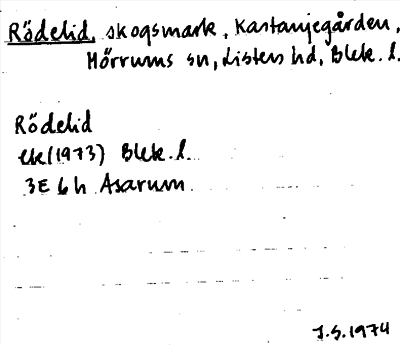 Rödelid, skogsmark, Kastanjegården,
Mörrums sn, Listers hd, Blek. l.
Rödelid
ek (1973) Blek. l.
3E 6h Asarum
J.S. 1974